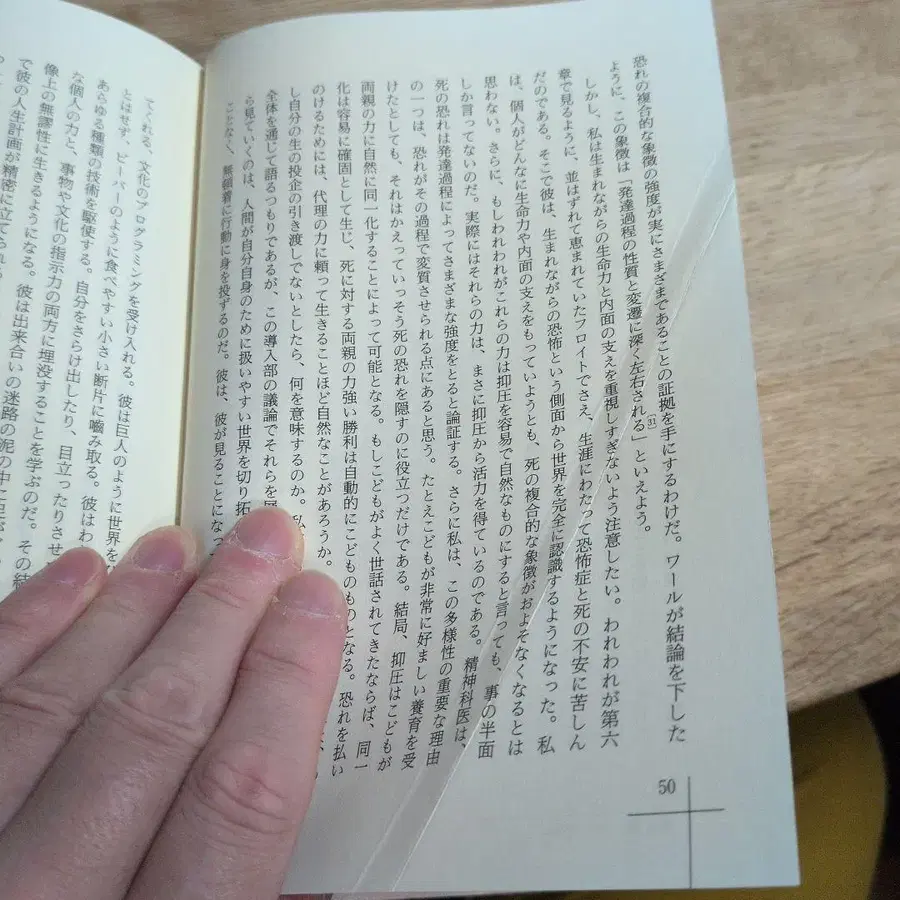 恐れの複合的な象徴の強度が実にさまざまであることの証拠を手にするわけだ。ワールが結論を下した
ように、この象徴は「発達過程の性質と変遷に深く左右される」[31]といえよう。
しかし、私は生まれながらの生命力と内面の支えを重視しすぎないよう注意したい。われわれが第六
章で見るように、並はずれて恵まれていたフロイトでさえ、生涯にわたって恐怖症と死の不安に苦しん
だのである。そこで彼は、生まれながらの恐怖という側面から世界を完全に認識するようになった。私
は、個人がどんなに生命力や内面の支えをもっていようとも、死の複合的な象徴がおよそなくなるとは
思わない。さらに、もしわれわれがこれらの力は抑圧を容易で自然なものにすると言っても、事の半面
しか言ってないのだ。実際にはそれらの力は、まさに抑圧から活力を得ているのである。精神科医は、
死の恐れは発達過程によってさまざまな強度をとると論証する。さらに私は、この多様性の重要な理由
の一つは、恐れがその過程で変質させられる点にあると思う。たとえこどもが非常に好ましい養育を受
けたとしても、それはかえっていっそう死の恐れを隠すのに役立つだけである。結局、抑圧はこどもが
両親の力に自然に同一化することによって可能となる。もしこどもがよく世話されてきたならば、同一
化は容易に確固として生じ、死に対する両親の力強い勝利は自動的にこどものものとなる。恐れを払い
のけるためには、代理の力に頼って生きることほど自然なことがあろうか。
し自分の生の投企の引き渡しでないとしたら、何を意味するのか。私
全体を通じて語るつもりであるが、この導入部の議論でそれらを
ら見ていくのは、人間が自分自身のために扱いやすい世界を切り拓
ことなく、無頓着に行動に身を投ずるのだ。彼は、彼が見ることになっ
50
てくれる、文化のプログラミングを受け入れる。彼は巨人のように世界を
とはせず、ビーバーのように食べやすい小さい断片に嚙み取る。彼は
あらゆる種類の技術を駆使する。自分をさらけ出したり、目立ったりさせ
な個人の力と、事物や文化の指示力の両方に埋没することを学ぶのだ。その結
像上の無謬性に生きるようになる。彼は出来合いの迷路の泥の中に
で彼の人生計画が精密に立てられ